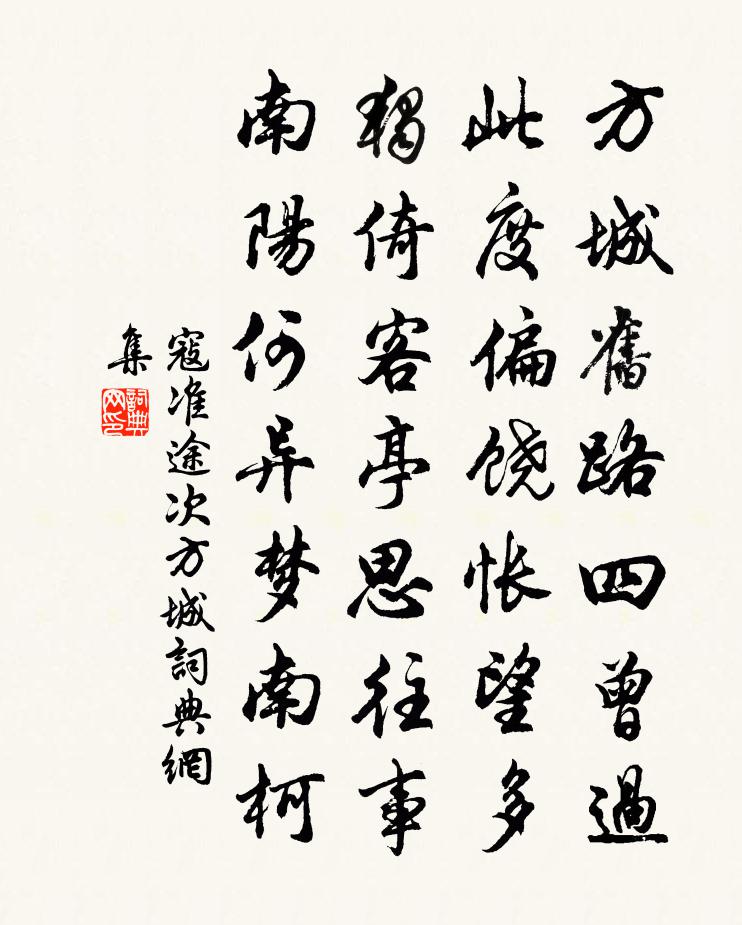 方城舊路四曾過
此度偏饶悵望多
獨倚客亭思往事
南陽何异梦南柯
寇准途次方城詞典網
集
詞典
网印